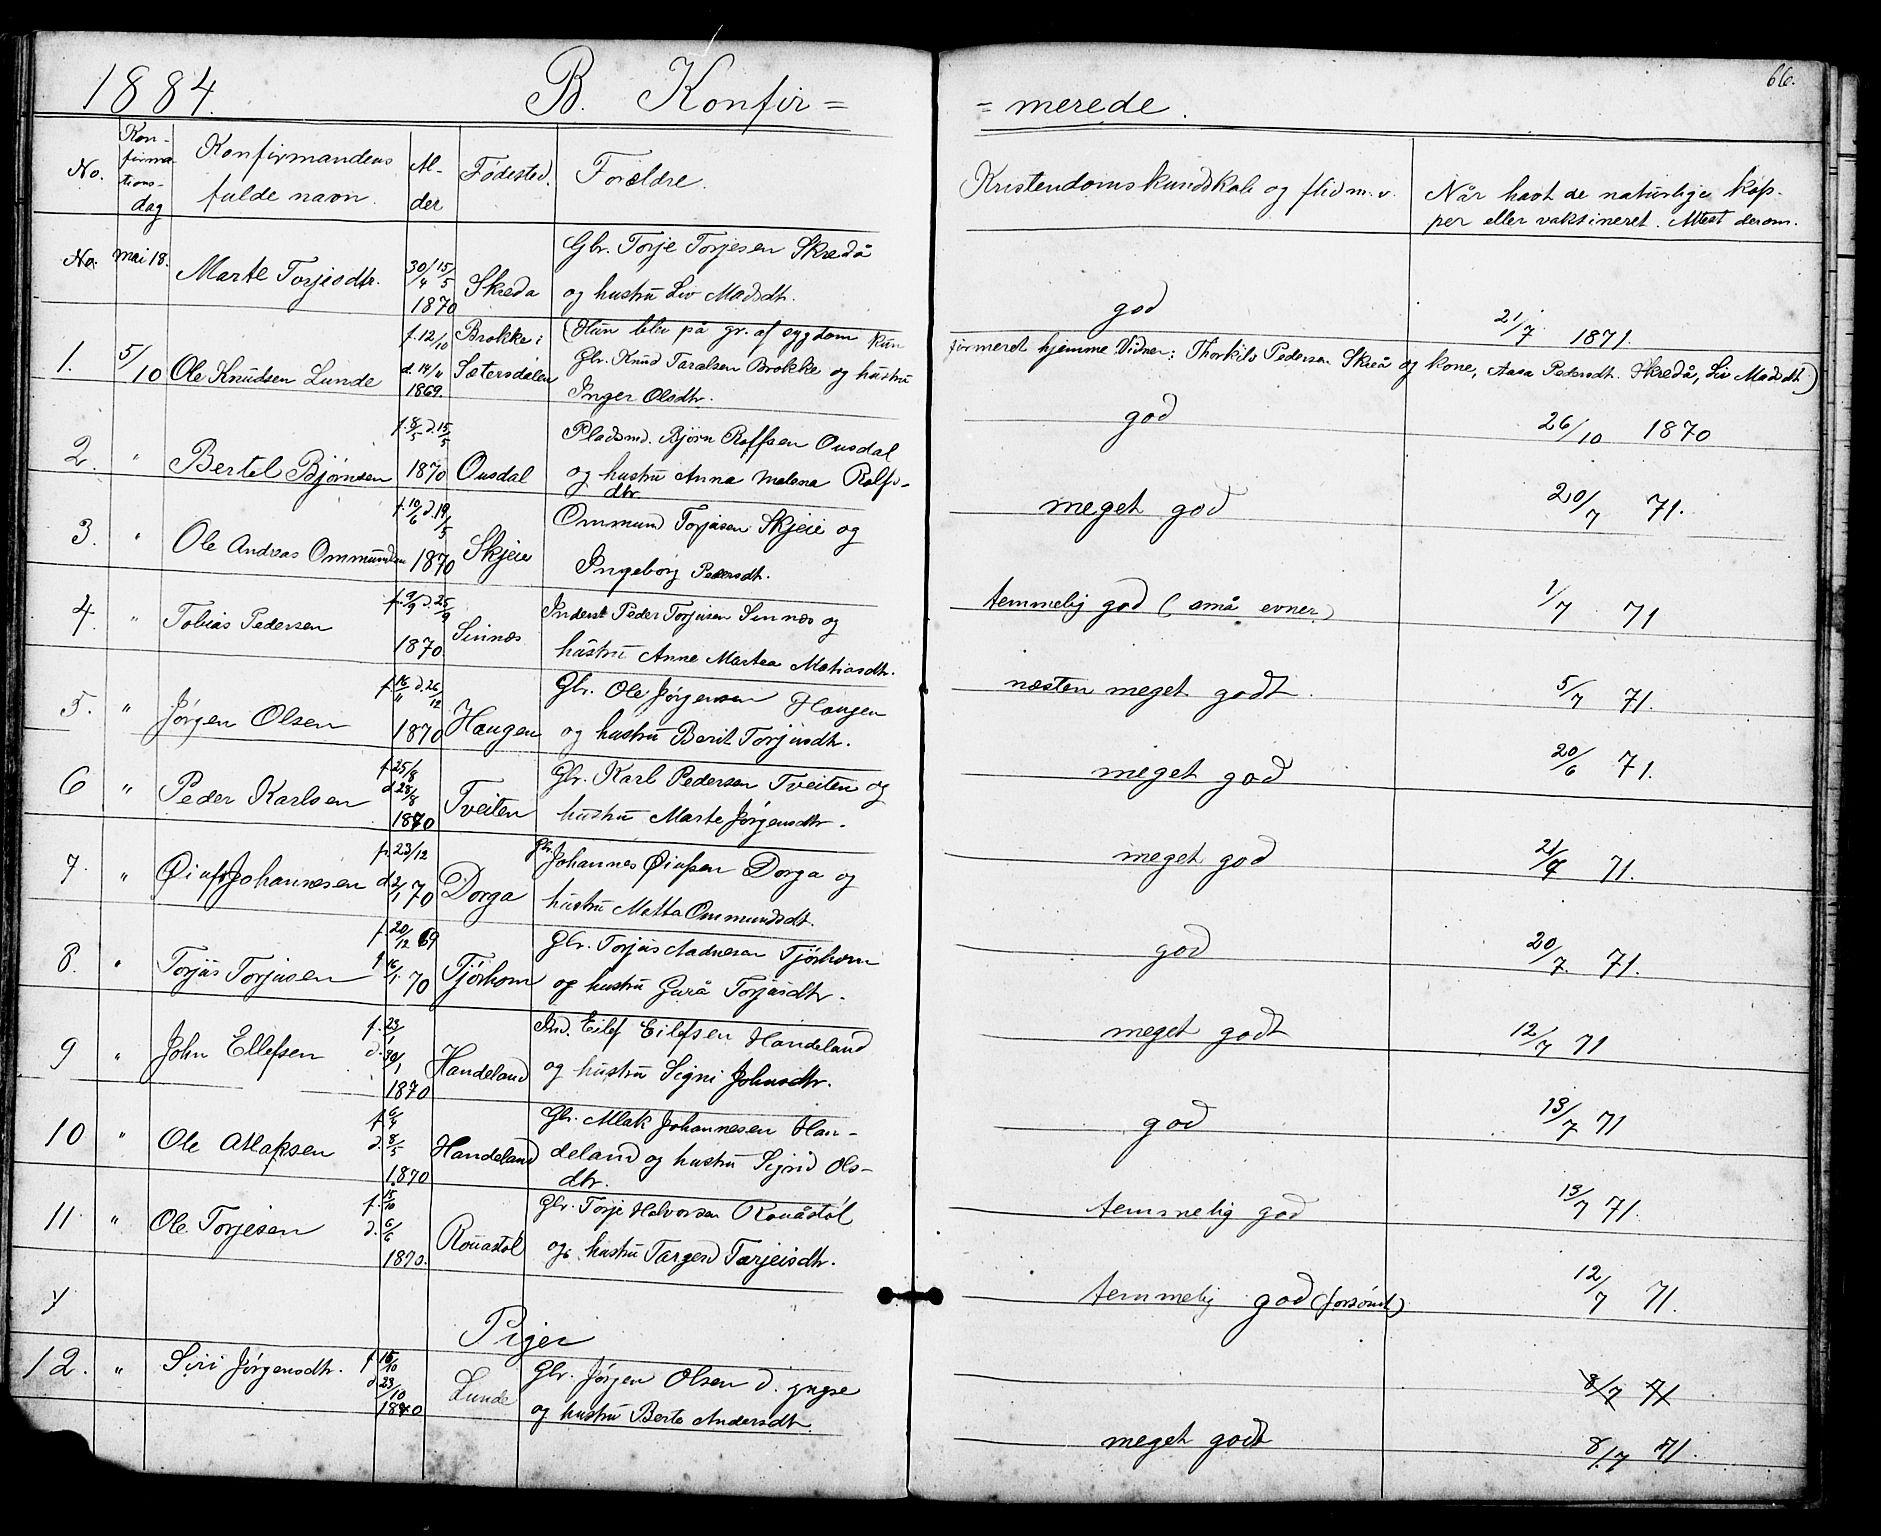 66.
1884. B. Konfir= =merede.
No. Konfirmationsdag Konfirmandens fulde navn. Alder Fødested. Forældre. Kristendomskundskab og flid m. v. Når havt de naturlige kopper eller vaksineret. Attest derom.
No. mai 18. Marte Torjesdtr. 30/4 15/5 1870 Skreda Gbr. Torje Torjesen Skredå
og hustru Liv Madsdt. god 21/7 1871.
(Hun blev på gr. af sygdom kun firmeret hjemme. Vidner: Thorkils Pedersen Skreå og kone, Aasa Pedersdt. Skredå, Liv Madsdt)
1. 5/10 Ole Knudsen Lunde f. 12/10 d. 14/11 1869. Brokke i Sætersdalen Gbr. Knud Taralsen Brokke og hustru
Inger Olsdtr. god 26/10 1870
2. " Bertel Bjørnsen f. 8/5 d. 15/5 1870 Ousdal Pladsmd. Bjørn Roffsen Ousdal
og hustru Anna Malena Rolfs-
dtr. meget god 20/7 71.
3. " Ole Andreas Ommundsen f. 10/6 d. 19/5 1870 Skjeie Ommund Torjusen Skjeie og
Ingeborg Pedersdt. temmelig god (små evner) 1/7 71
4. " Tobias Pedersen f. 9/9 d. 25/9 1870 Sinnes Inderst Peder Torjusen Sinnes og
hustru Anne Martea Matiasdtr. næsten meget godt. 5/7 71.
5. " Jørgen Olsen f. 16/11 d. 26/12 1870 Haugen Gbr. Ole Jørgensen Haugen
og hustru Berit Torjusdtr. meget god 20/6 71.
6 " Peder Karlsen f. 25/8 d. 28/8 1870 Tveiten Gbr. Karl Pedersen Tveiten og
hustru Marte Jørgensdtr. meget god 21/7 71.
7. " Øiuf Johannesen f. 23/12 d. 2/1 70 Dorga Gbr. Johannes Øiufsen Dorga og
hustru Metta Ommundsdt. god 20/7. 71.
8. " Torjus Torjusen f. 20/12 69 16/1. 70 Tjørhom Gbr. Torjus Aadnesen Tjørhom
og hustru Gurå Torjusdtr. meget godt 12/7 71
9 " John Ellefsen f. 23/1 d. 30/1 1870 Handeland Ind. Eilef Eilefsen Handeland
og hustru Signi Johnsdtr. god 13/7 71
10 " Ole Atlaksen f. 6/4 d. 8/5 1870 Handeland Gbr. Atlak Johannesen Han-
deland og hustru Sigrid Ols-
dtr. temmelig god 13/7 71.
11. " Ole Torjesen f. 15/10 d. 6/6 1870. Rouastøl Gbr. Torje Halvorsen Rouåstøl
og hustru Targerd Tarjeisdtr. temmelig god (forsømt) 12/7 71.
Piger 8/7 71
12. " Siri Jørgensdtr. f. 16/10 d. 23/10 1870 Lunde Gbr. Jørgen Olsen d. yngre
og hustru Berte Andersdtr. meget godt 8/7 71.